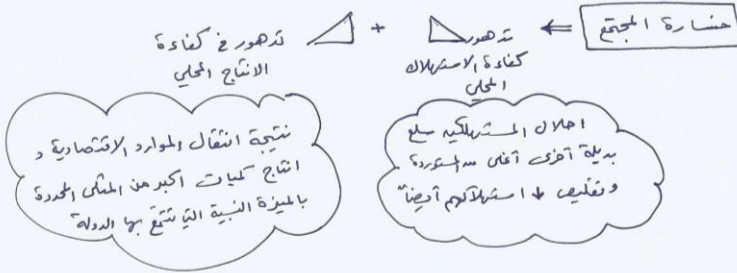 خسارة المجتمع ⇐ تدهور + تدهور في كفاءة
كفاءة الاستهلاك
المحلي
الانتاج المحلي
احلال المستهلكين سلع
بديلة أخرى أغلى من المستوردة
وتقليص ↓ استهلاكهم أيضاً
نتيجة انتقال الموارد الاقتصادية و
انتاج كميات أكبر من المثلى المحددة
بالميزة النسبية التي تتمتع بها الدولة